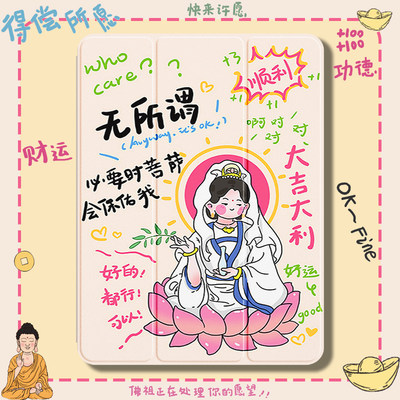 得偿所愿
快来许愿
+100
+100
功德
财运
OK~Fine
who
care? ? ?
+3
+1
+1
+1
+1
顺利
无所谓
(Anyway, it's ok!)
啊对
对 对
必要时菩萨
会保佑我
大吉大利
好的!
都行!
可以!
好运
good
佛祖正在处理你的愿望!!